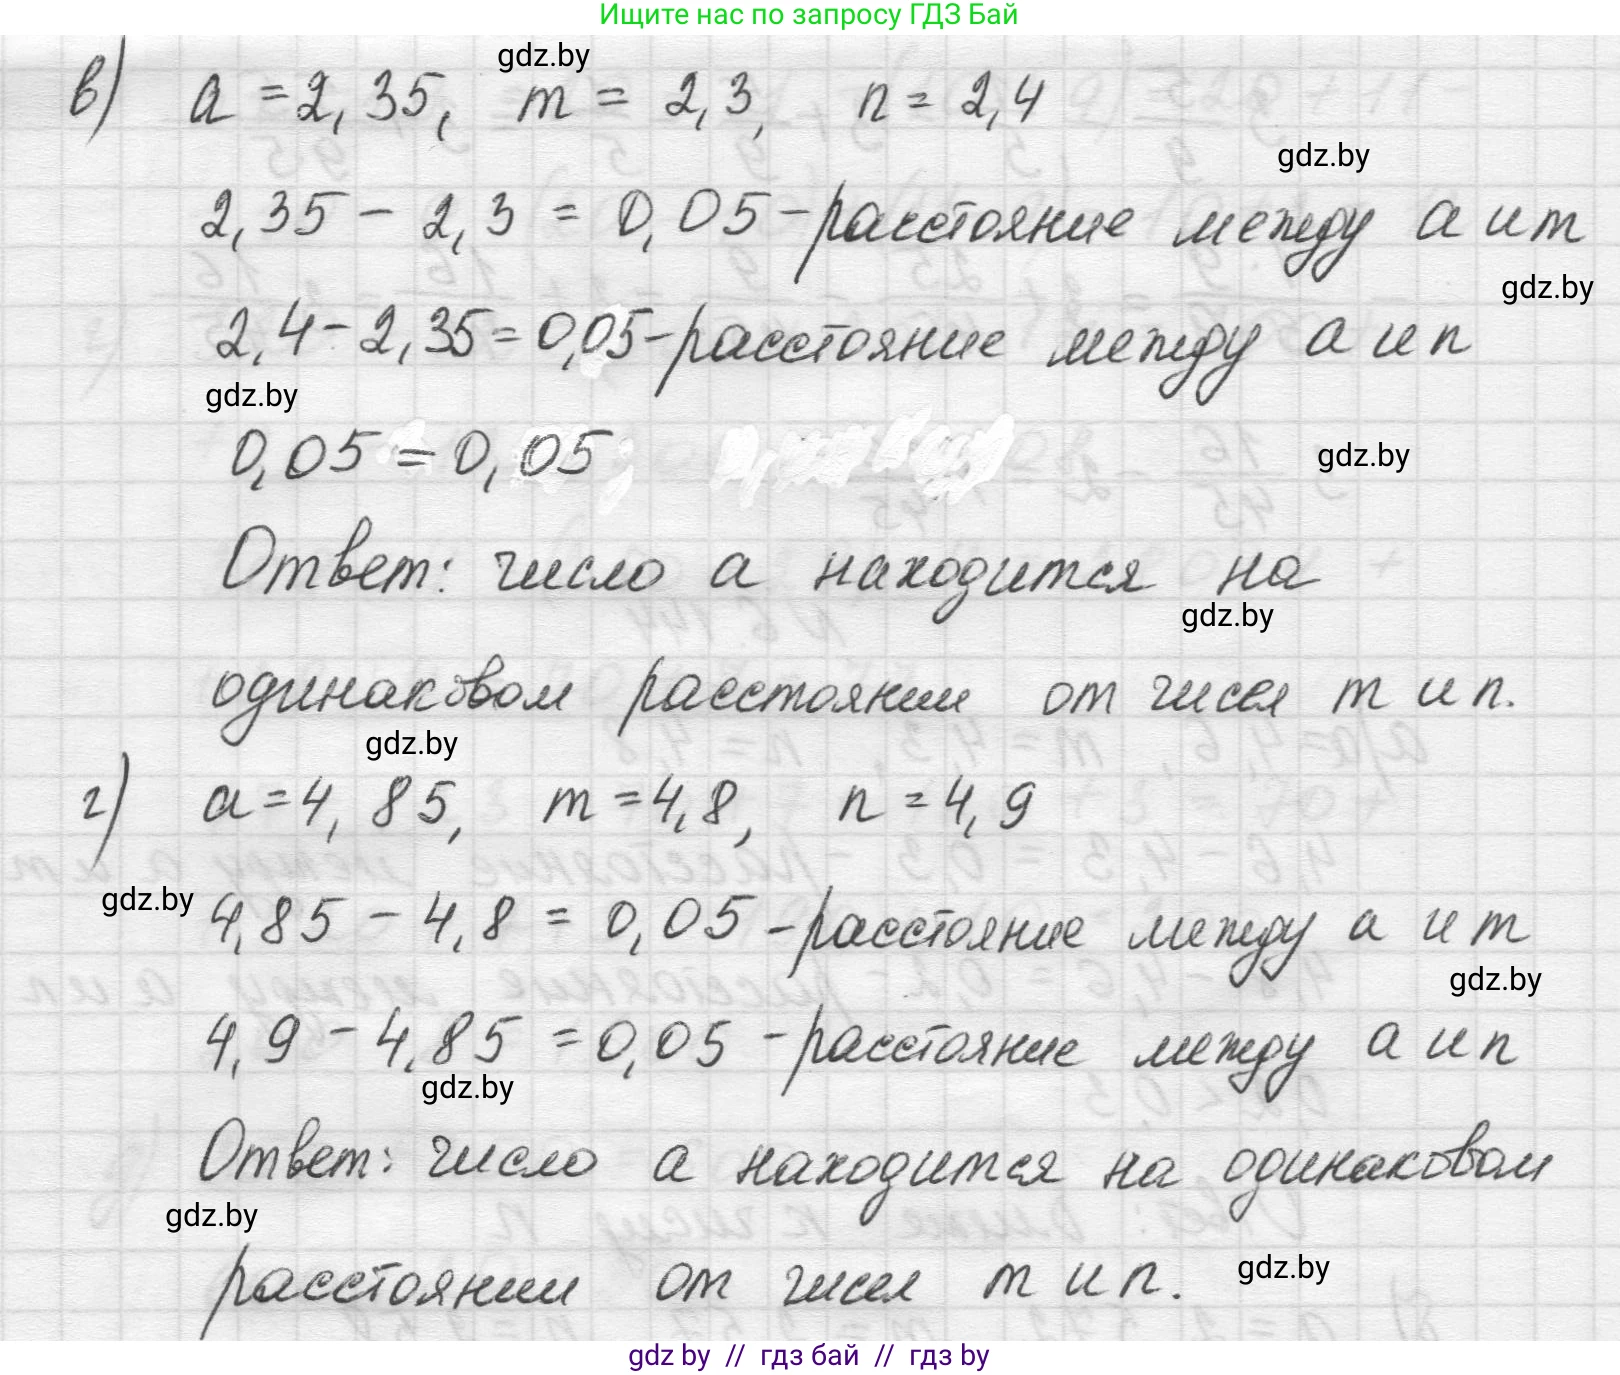 Ищите нас по запросу ГДЗ Бай
gdz.by
в) a = 2,35, m = 2,3, n = 2,4
gdz.by
2,35 - 2,3 = 0,05 - расстояние между a и m
gdz.by
2,4 - 2,35 = 0,05 - расстояние между a и n
gdz.by
0,05 = 0,05
gdz.by
Ответ: число a находится на
gdz.by
одинаковом расстоянии от чисел m и n.
gdz.by
г) a = 4,85, m = 4,8, n = 4,9
gdz.by
4,85 - 4,8 = 0,05 - расстояние между a и m
gdz.by
4,9 - 4,85 = 0,05 - расстояние между a и n
gdz.by
Ответ: число a находится на одинаковом
gdz.by
расстоянии от чисел m и n.
gdz.by
gdz by // гдз бай // гдз by